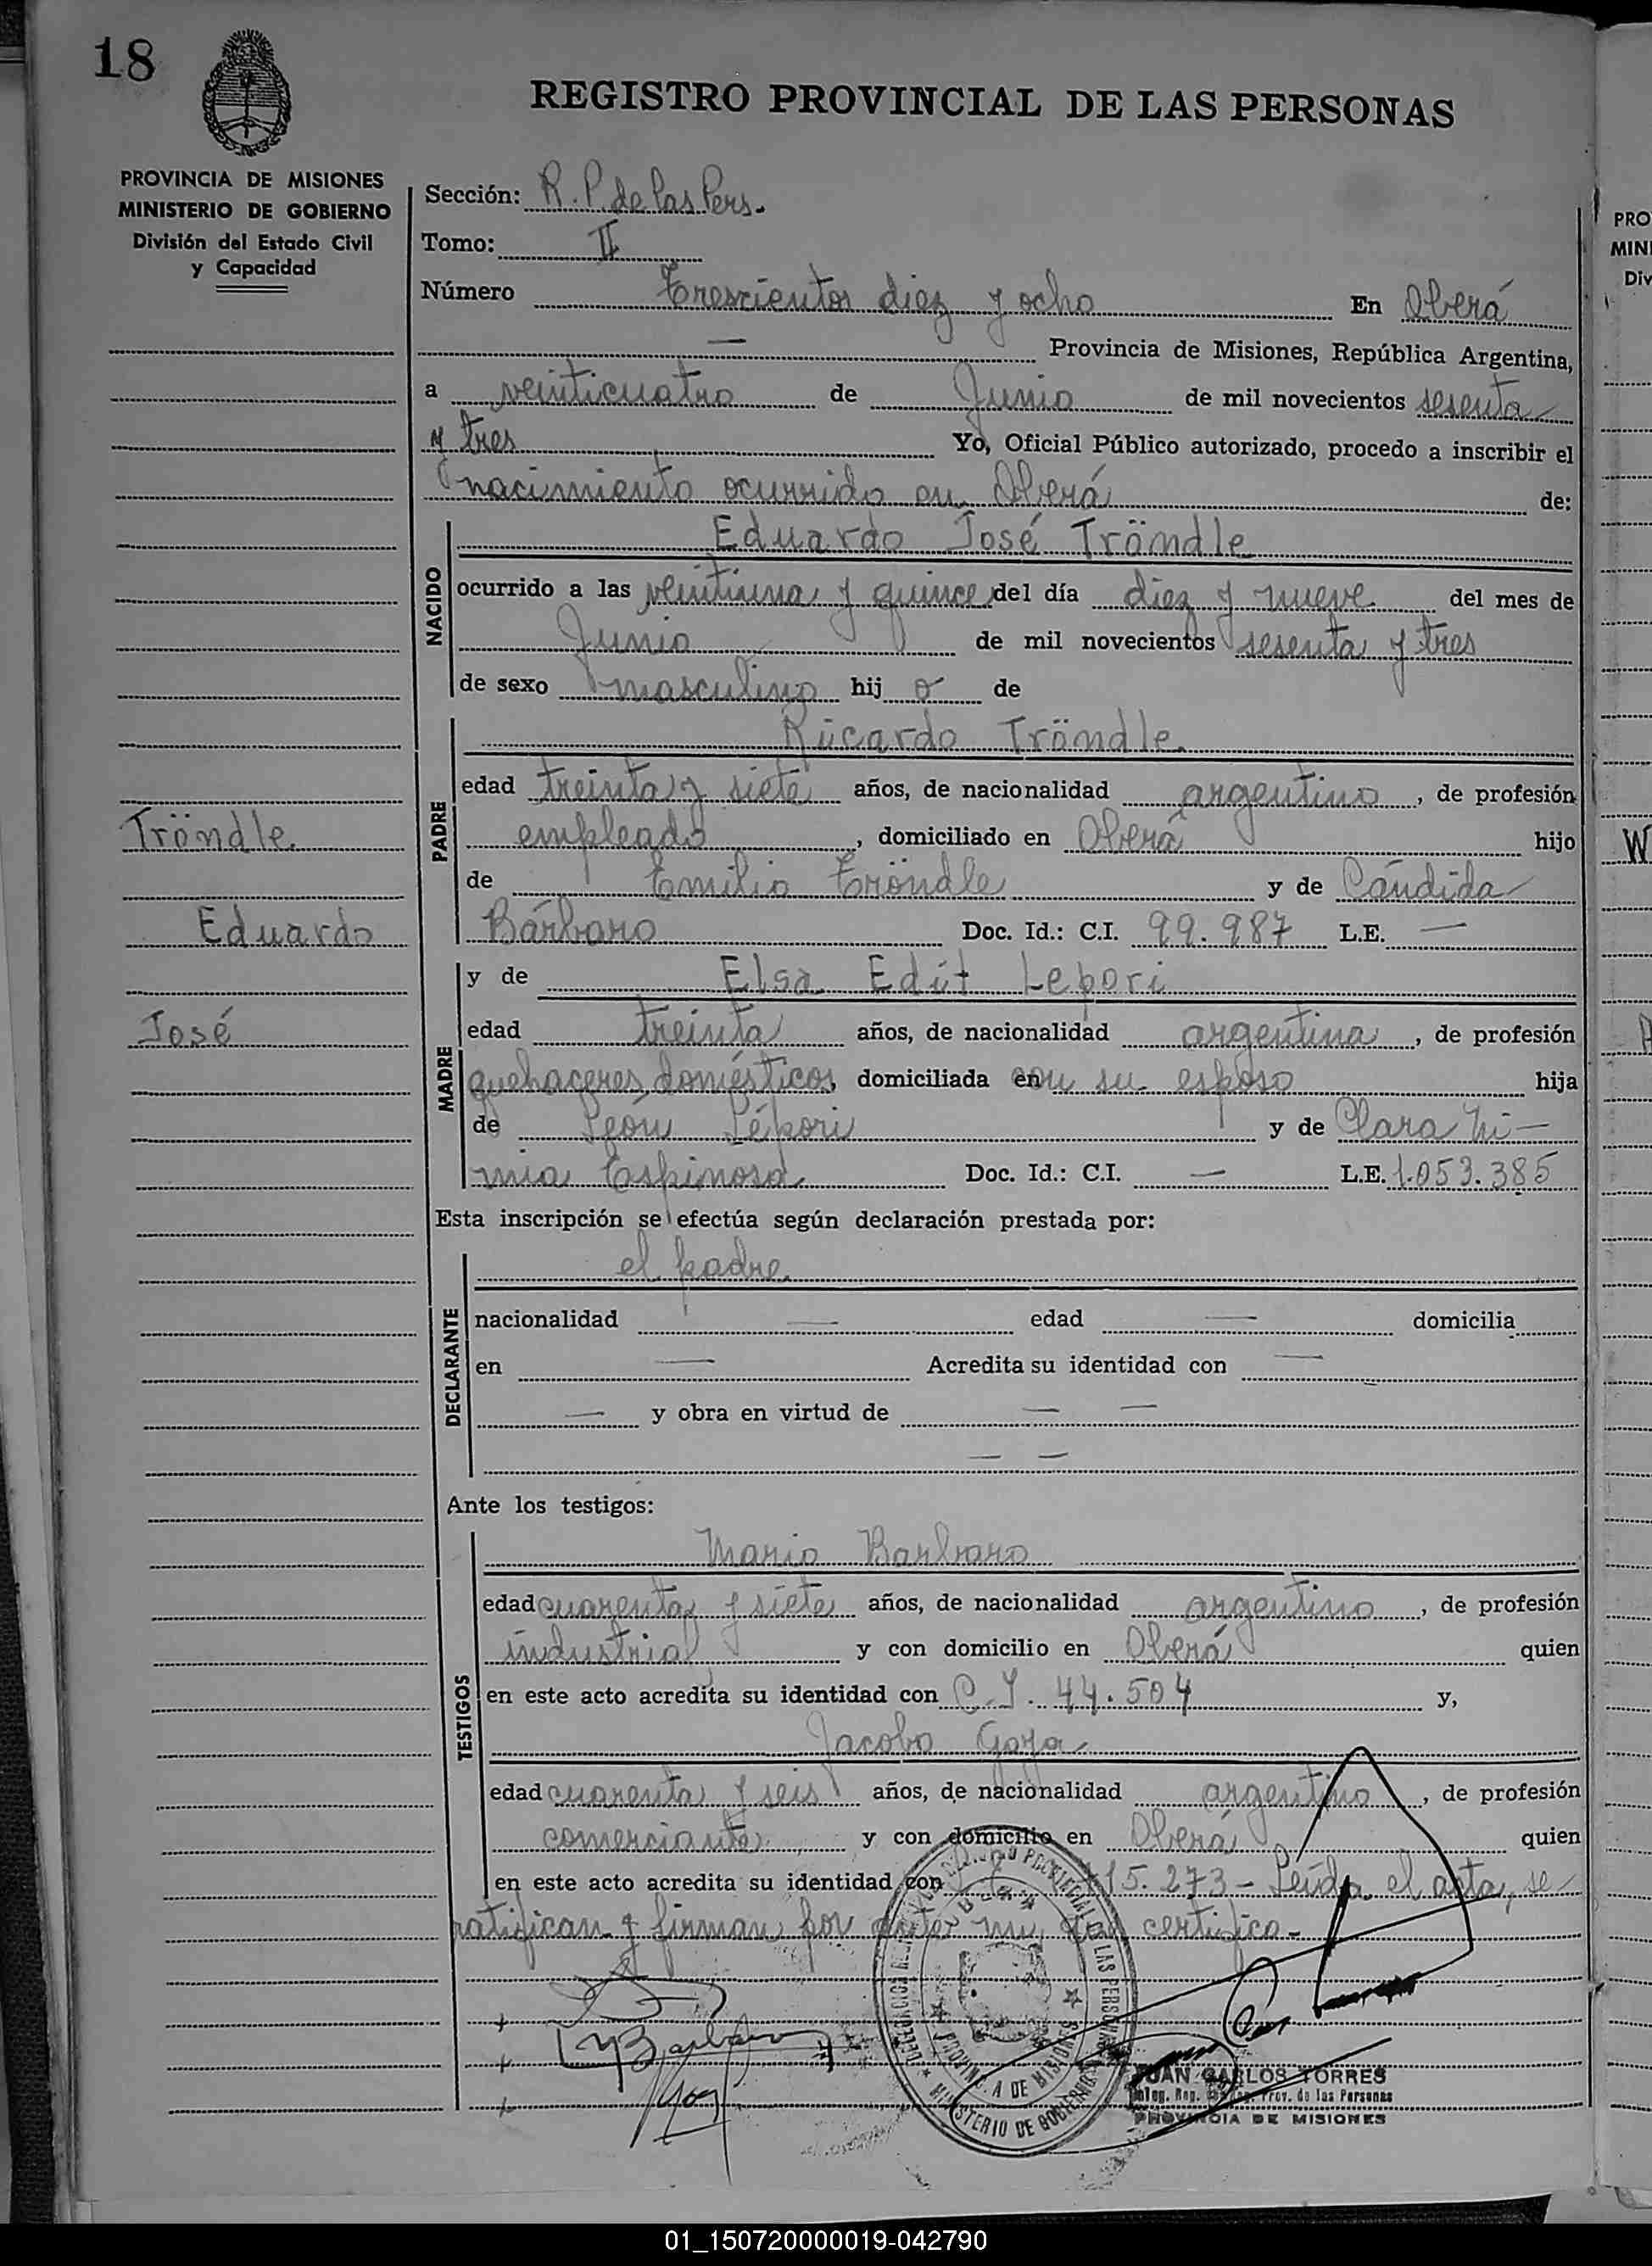 18
REGISTRO PROVINCIAL DE LAS PERSONAS
PROVINCIA DE MISIONES
MINISTERIO DE GOBIERNO
División del Estado Civil
y Capacidad
Sección: R. P. de las Pers.
Tomo: II
Número Trescientos diez y ocho En Oberá
— Provincia de Misiones, República Argentina,
a veinticuatro de Junio de mil novecientos sesenta
y tres Yo, Oficial Público autorizado, procedo a inscribir el
nacimiento ocurrido en Oberá de:
NACIDO
Eduardo José Tröndle
ocurrido a las veintiuna y quince del día diez y nueve del mes de
Junio de mil novecientos sesenta y tres
de sexo masculino hij o de
PADRE
Ricardo Tröndle
edad treinta y siete años, de nacionalidad argentino, de profesión
empleado, domiciliado en Oberá hijo
de Emilio Tröndle y de Cándida
Bárbaro Doc. Id.: C.I. 99.987 L.E. —
Tröndle
Eduardo
José
MADRE
y de Elsa Edit Lepori
edad treinta años, de nacionalidad argentina, de profesión
quehaceres domésticos, domiciliada en con su esposo hija
de León Lépori y de Clara
Espinosa Doc. Id.: C.I. — L.E. 1.053.385
Esta inscripción se efectúa según declaración prestada por:
DECLARANTE
el padre
nacionalidad — edad — domicilia
en — Acredita su identidad con —
— y obra en virtud de — —
— —
Ante los testigos:
TESTIGOS
Mario Barbaro
edad cuarenta y siete años, de nacionalidad argentino, de profesión
industrial y con domicilio en Oberá quien
en este acto acredita su identidad con C.I. 44.504 y,
Jacobo Goya
edad cuarenta y seis años, de nacionalidad argentino, de profesión
comerciante y con domicilio en Oberá quien
en este acto acredita su identidad con 15.273- Leída el acta, se
ratifican y firman por ante mi, que certifico-
MBarbaro
JUAN CARLOS TORRES
Prov. de las Personas
PROVINCIA DE MISIONES
PROVINCIAL DE LAS PERSONAS
PROVINCIA DE MISIONES
MINISTERIO DE GOBIERNO
PRO
MINI
Div
W
01_150720000019-042790